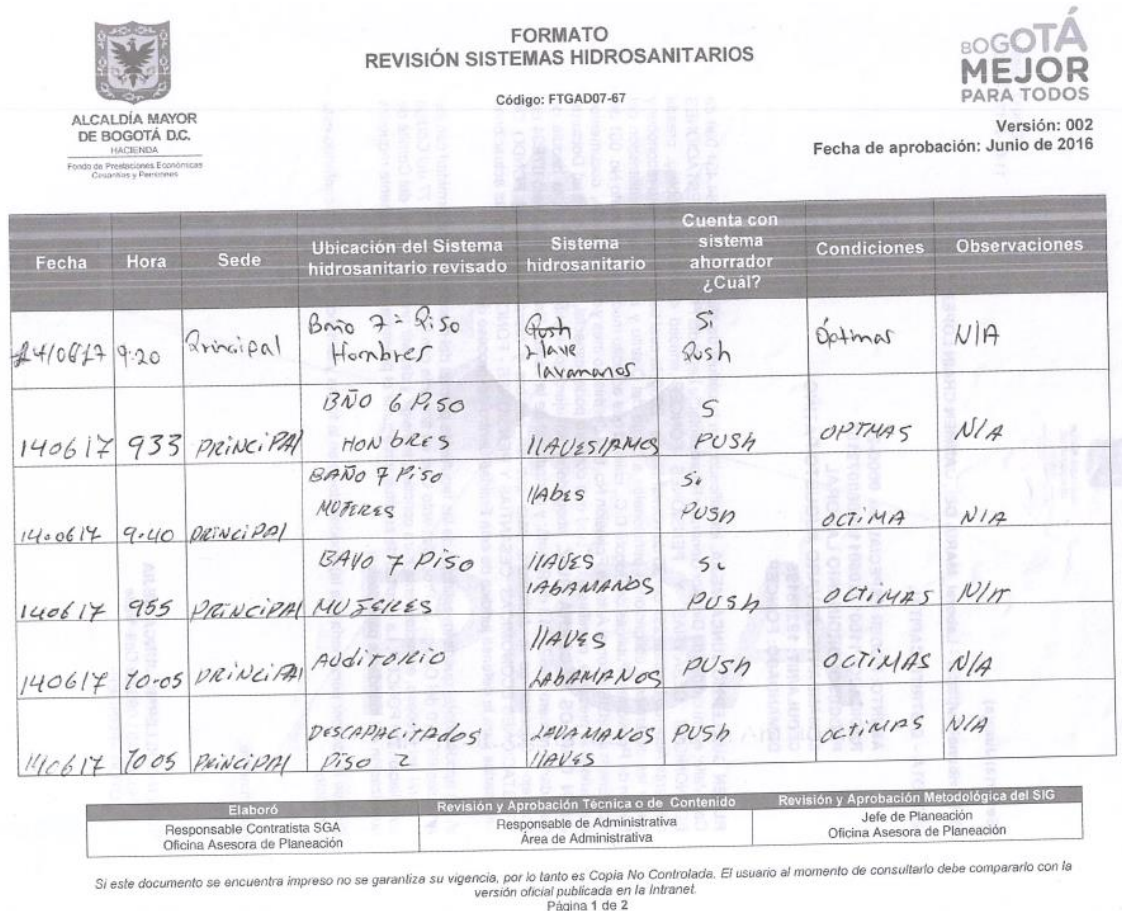 FORMATO
REVISIÓN SISTEMAS HIDROSANITARIOS
Código: FTGAD07-67
ALCALDÍA MAYOR
DE BOGOTÁ D.C.
HACIENDA
Fondo de Prestaciones Económicas
Cesantías y Pensiones
BOGOTÁ
MEJOR
PARA TODOS
Versión: 002
Fecha de aprobación: Junio de 2016
Fecha Hora Sede Ubicación del Sistema hidrosanitario revisado Sistema hidrosanitario Cuenta con sistema ahorrador ¿Cuál? Condiciones Observaciones
9:20 Principal Baño 7= Piso Hombres Push Llave lavamanos Si Push Óptimas N/A
140617 933 PRINCIPAl BÑO 6 PiSO HONbRES S PUSh OPTMAS N/A
140617 9.40 PRINCIPAl BAÑO 7 PiSO MUJERES llAbES Si PUSh OCTiMA N/A
140617 955 PRINCIPAl BAÑO 7 PiSO MUJERES llAVES lAbAMANOS Si PUSh OCTiMAS N/A
140617 10-05 PRINCIPAl AUdiTORIO llAVES LAbAMANOS PUSh OCTiMAS N/A
140617 1005 PRINCIPAl DESCAPACiTAdOS PiSO 2 LAVAMANOS llAVES PUSh OCTiMAS N/A
Elaboró Revisión y Aprobación Técnica o de Contenido Revisión y Aprobación Metodológica del SIG
Responsable Contratista SGA Responsable de Administrativa Jefe de Planeación
Oficina Asesora de Planeación Área de Administrativa Oficina Asesora de Planeación
Si este documento se encuentra impreso no se garantiza su vigencia, por lo tanto es Copia No Controlada. El usuario al momento de consultarlo debe compararlo con la
versión oficial publicada en la Intranet.
Página 1 de 2